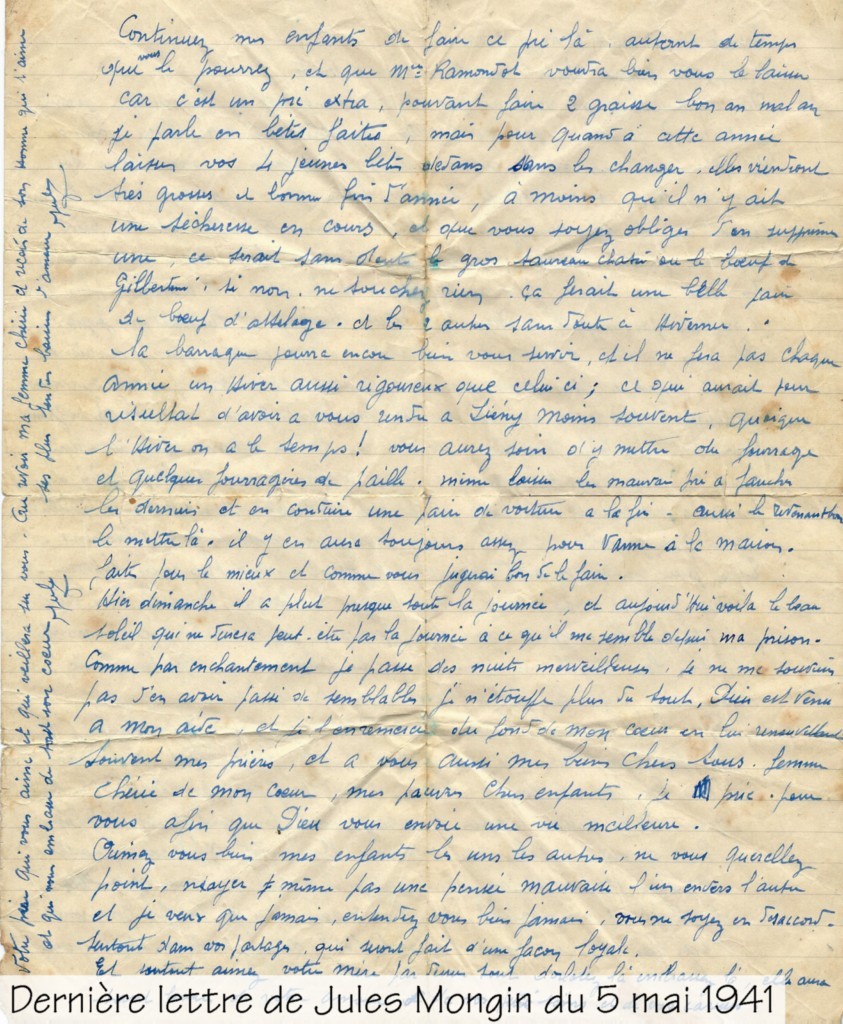 Continuez mes enfants de faire ce pré là, autant de temps
que vous le pourrez, et que Mme Ramondot voudra bien vous le laisser
car c'est un pré extra, pouvant faire 2 graisse bon an mal an
je parle en bêtes faites, mais pour quand à cette année
laissez vos 4 jeunes bêtes dedans sans les changer, elles viendront
très grosses et bonne fin d'année, à moins qu'il n'y ait
une sécheresse en cours, et que vous soyez obligés d'en supprimer
une, ce serait sans doute le gros taureau chatré ou le bœuf de
si non, ne touchez rien. ça ferait une belle paire
de bœuf d'attelage. et les 2 autres sans doute à Hiverner.
la barraque pourra encore bien vous servir, et il ne fera pas chaque
année un Hiver aussi rigoureux que celui ci; ce qui aurait pour
résultat d'avoir a vous rendre a moins souvent, quoique
l'Hiver on a le temps! vous aurez soin d'y mettre du fourrage
et quelques fourragères de paille. même laisser les mauvais pré a faucher
les derniers et en conduire une paire de voiture a la fin - aussi le
le mettre là. il y en aura toujours assez pour à la maison.
faites pour le mieux et comme vous jugerai bon de le faire.
Hier dimanche il a plut presque toute la journée, et aujourd'Hui voila le beau
soleil qui ne durera peut-être pas la journée à ce qu'il me semble depuis ma prison.
Comme par enchantement je passe des nuits merveilleuses, je ne me souviens
pas d'en avoir passé de semblables je n'étouffe plus du tout, Dieu est venu
a mon aide, et je l'en remercie du fond de mon cœur en lui renouvellant
souvent mes prières, et a vous aussi mes biens chers tous. femme
chérie de mon cœur, mes pauvres chers enfants, je prie pour
vous afin que Dieu vous envoie une vie meilleure.
Aimez vous bien mes enfants les uns les autres, ne vous querellez
point, n'ayez même pas une pensée mauvaise l'un envers l'autre
et je veux que jamais, entendez vous bien jamais, vous ne soyez en désaccord.
surtout dans vos partages, qui seront fait d'une façon loyale.
Et surtout aimez votre mère par dessus tout elle aura
Votre père qui vous aime et qui veillera sur vous. Au revoir ma femme chérie et reçois de ton Homme qui t'aime
et qui vous embrasse de tout son cœur Jules
ses plus tendres baisers d'amour Jules
Dernière lettre de Jules Mongin du 5 mai 1941